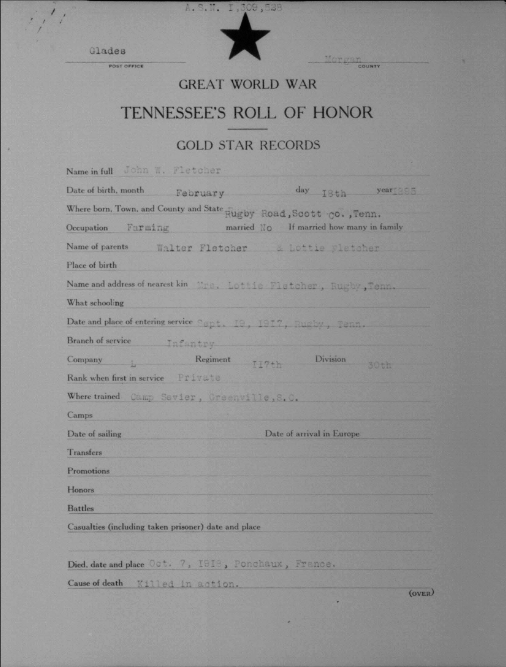 A.S.N. 1,309,528
Glades Morgan
POST OFFICE COUNTY
GREAT WORLD WAR
TENNESSEE'S ROLL OF HONOR
GOLD STAR RECORDS
Name in full John W. Fletcher
Date of birth, month February day 18th year
Where born, Town, and County and State Rugby Road,Scott co.,Tenn.
Occupation Farming married No If married how many in family
Name of parents Walter Fletcher & Lottie Fletcher
Place of birth
Name and address of nearest kin Mrs. Lottie Fletcher, Rugby,Tenn.
What schooling
Date and place of entering service Sept. 19, 1917, Rugby, Tenn.
Branch of service Infantry
Company L Regiment 117th Division 30th
Rank when first in service Private
Where trained Camp Sevier, Greenville,S.C.
Camps
Date of sailing Date of arrival in Europe
Transfers
Promotions
Honors
Battles
Casualties (including taken prisoner) date and place
Died, date and place Oct. 7, 1918, Ponchaux, France.
Cause of death Killed in action.
(OVER)